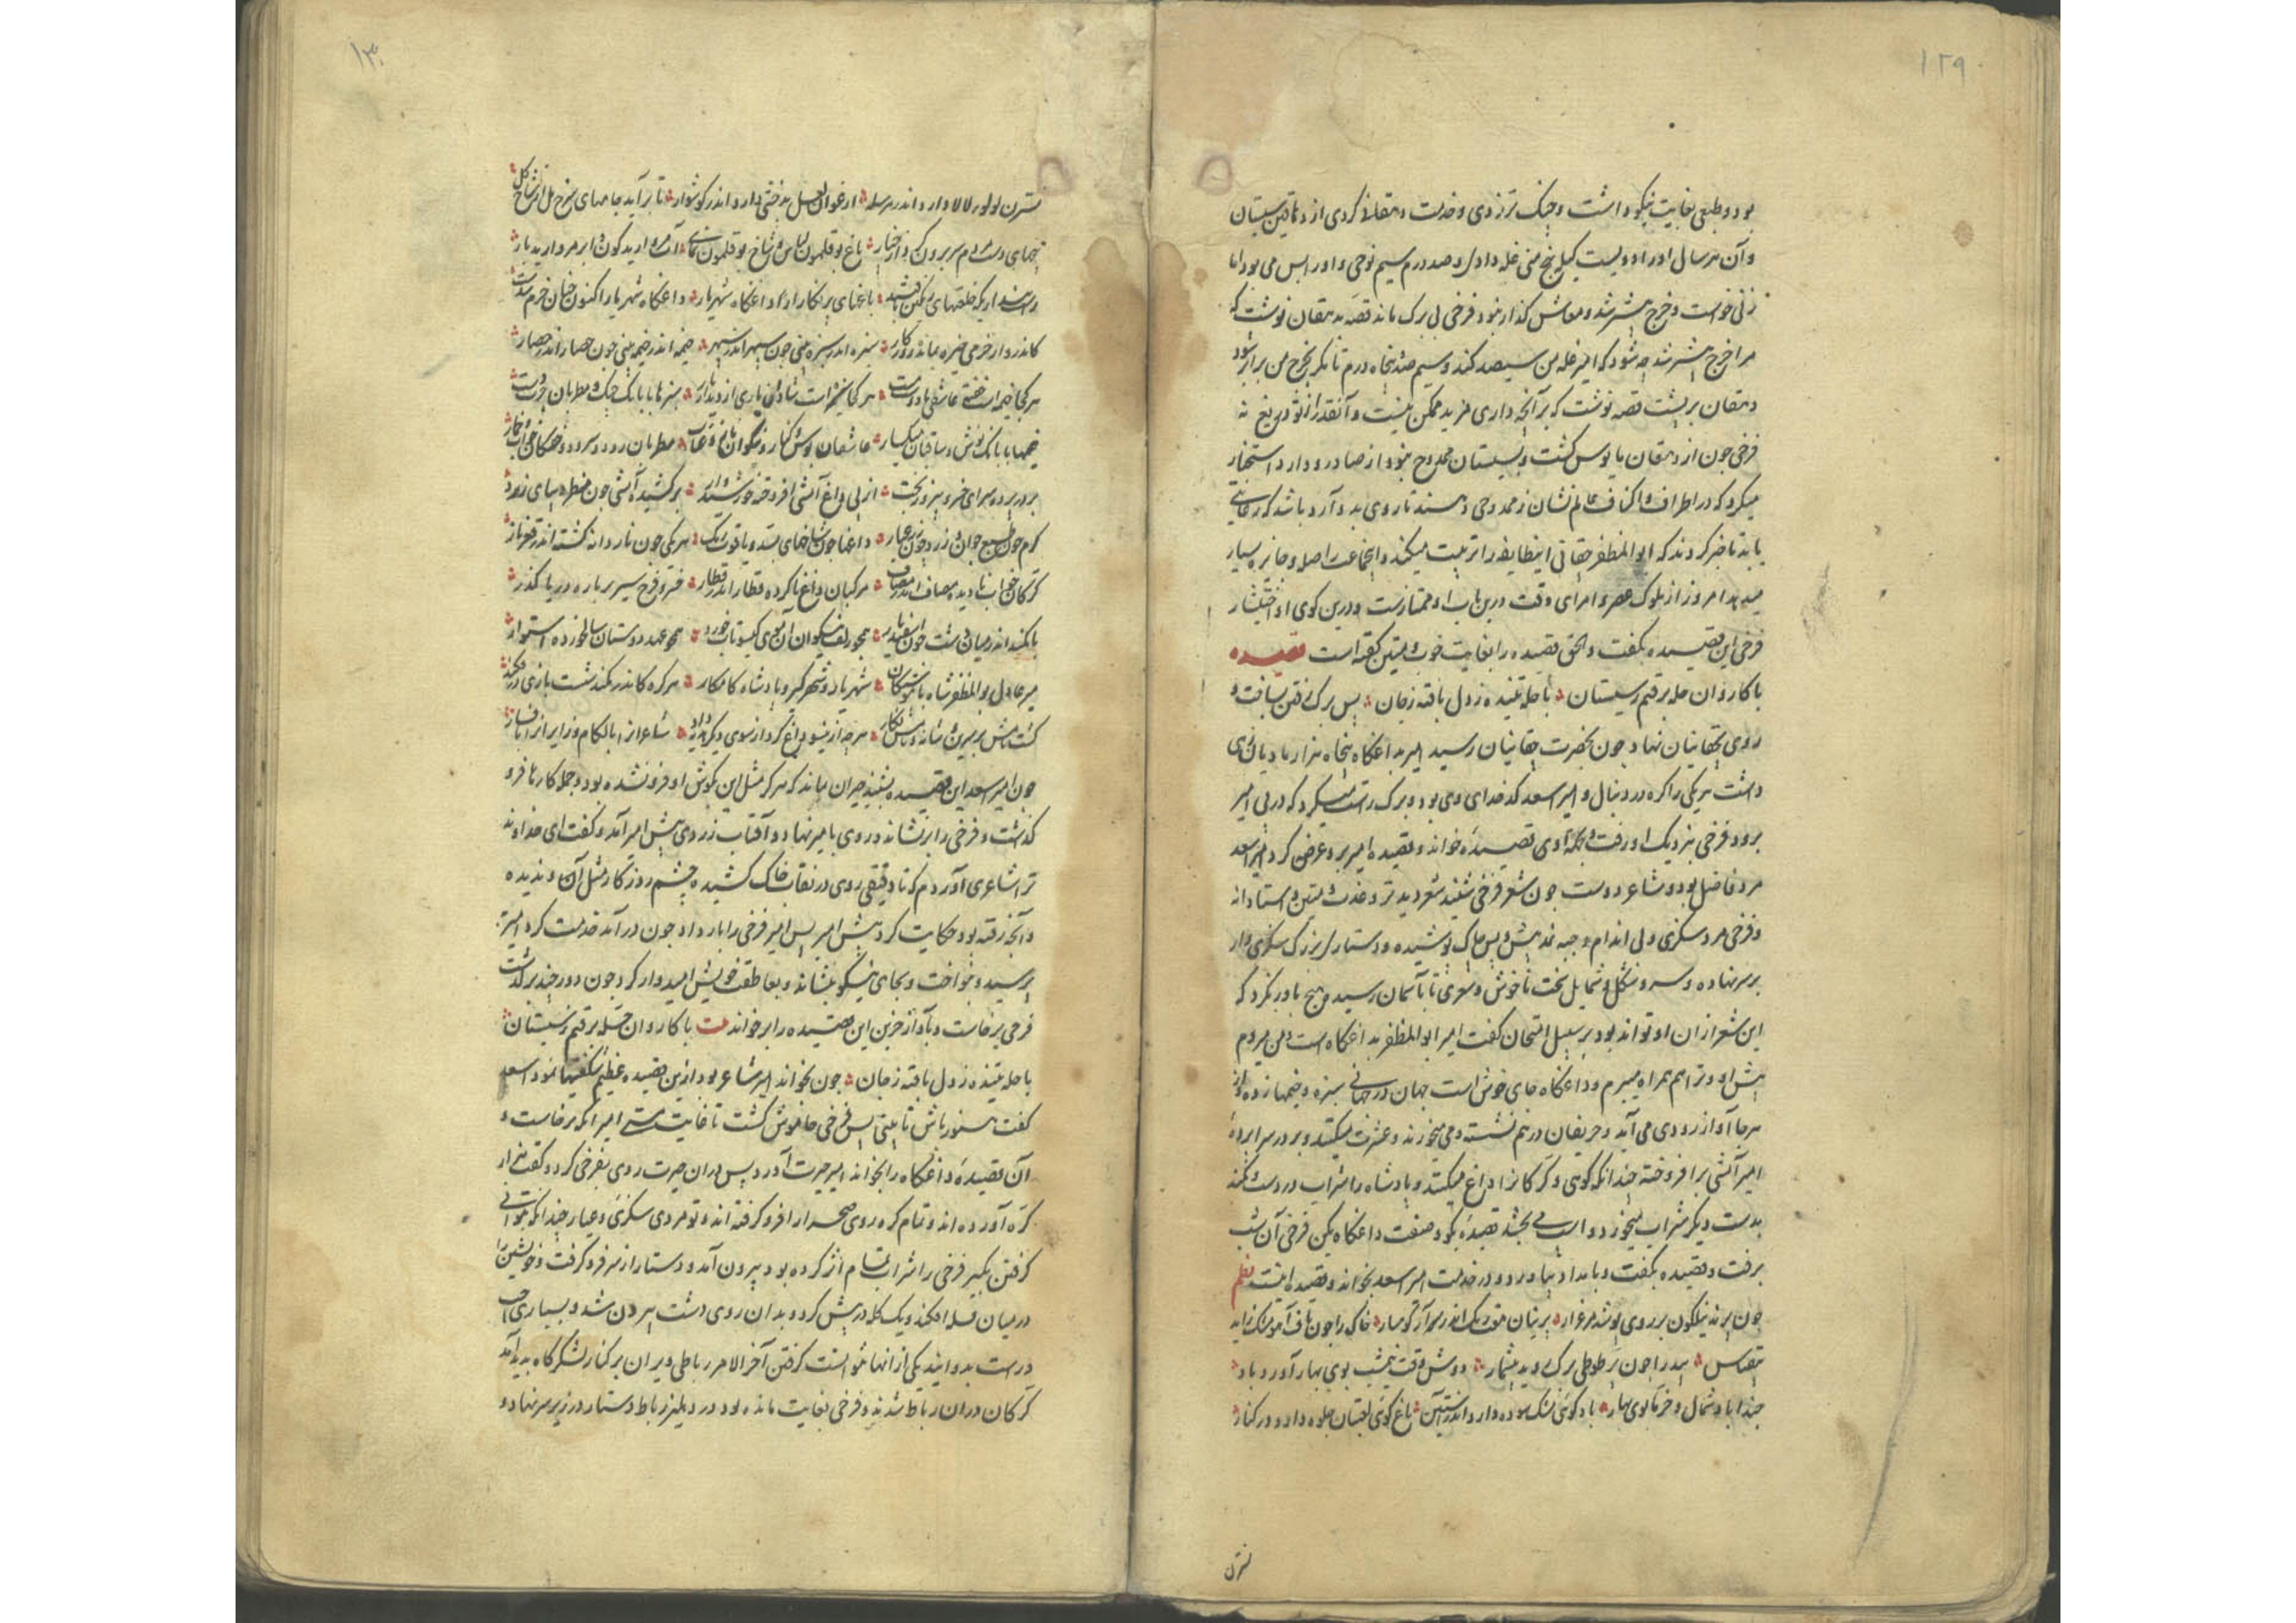 ۱۲۹
بود و طبعی بغایت نیکو داشت و چنک تر زدی و خدمت دهقانی کردی از دهاقین سیستان
و آن هر سال او را دویست کیل پنج منی غله دادی و صد درم سیم نوحی و او را بس می بود اما
زنی خواست و خرج بیشتر شد و معاش کذار نبود فرخی بی برک ماند قصه بدهقان نوشت که
مرا خرج بیشتر شد چه شود که امیر غله من سیصد کند و سیم صد و پنجاه درم تا مکر بخرج من برابر شود
دهقان بر پشت قصه نوشت که بر آنچه داری مزید ممکن نیست و آنقدر از تو دریغ نه
فرخی چون از دهقان مایوس کشت و بسیستان ممدوح نبود از صادر و وارد استخبار
میکرد که در اطراف و اکناف عالم نشان ز ممدوحی دهند تا روی بدو آرد باشد که رعایتی
یابد تا خبر کردند که ابوالمظفر چغانی اینطایفه را تربیت میکند و اینجماعت را صله و جایزه بسیار
میدهد امروز از ملوک عصر و امرای وقت درین باب او ممتازست و درین کوی او اختیار
فرخی این قصیده بکفت و الحق قصیده را بغایت خوب و متین کفته است قصیده
با کاروان حله برفتم ز سیستان با حله تنیده ز دل بافته ز جان پس برک رفتن بساخت و
روی بچغانیان نهاد چون بحضرت چغانیان رسید امیر بداغکاه پنجاه هزار مادیان زهی
داشت هر یکی را کره در دنبال و امیر اسعد کدخدای وی بود و برک راست میکرد که در پی امیر
برود فرخی بنزدیک او رفت و بحکم آوی قصیده خواند و قصیده امیر برو عرض کرد امیر اسعد
مرد فاضل بود و شاعر دوست چون شعر فرخی شنید شعر دید تر و عذب و متین و استادانه
و فرخی مرد سکزی و بی اندام و جبه نمد پیش و پس چاک پوشیده و دستارکی بزرک سکزی وار
بر سر نهاده و سر و شکل و شمایل سخت ناخوش و شعری تا بآسمان رسیده هیچ باور نکرد که
این شعر از ان او تواند بود بر سبیل امتحان کفت امیر ابوالمظفر بداغکاه است و من میروم
پیش او و ترا هم همراه میبرم و داغکاه جای خوش است جهان در جهانی سبزه و خیمها زده و از
هر جا آواز رودی می آید و حریفان در هم نشسته و می میخورند و عشرت میکنند و بر در سرا پرده
امیر آتشی برافروخته چندانکه کوهی و کرکانرا داغ میکنند و پادشاه را شراب در دست و کمند
بدست دیکر شراب میخورد و اسب می بخشد قصیده بکو و صفت داغکاه بکن فرخی آن شب
برفت و قصیده بکفت و بامداد بیاورد و در خدمت امیر اسعد بخواند و قصیده اینست نظم
چون پرند نیلکون بر روی پوشد مرغزار پرنیان هفت رنک اندر سر آرد کوهسار خاک را چون ناف آهو مشک زاید
بیقیاس بید را چون پر طوطی برک روید بیشمار دوش وقت نیمشب بوی بهار آورد باد
حبذا باد شمال و خرما بوی بهار باد کوئی مشک سوده دارد اندر آستین باغ کوئی لعبتان جلوه دارد در کنار
نسترن
۱۳۰
نسترن لولوء لالا دارد اندر مرسله ارغوان لعل بدخشی دارد اندر کوشوار تا بر آید جامهای سرخ مل از شاخ کل
پنجهای دست مردم سر برون کرد از چنار باغ بوقلمون لباس و شاخ بوقلمون نمای آب مروارید کون و ابر مروارید بار
راست پنداریکه خلعتهای رنکین یافتند باغهای پر نکار از داغکاه شهریار داغکاه شهریار اکنون چنان خرم شدست
کاندرو از خرمی خیره بماند روزکار سبزه اندر سبزه بینی چون سپهر اندر سپهر خیمه اندر خیمه بینی چون حصار اندر حصار
هر کجا خیمه است خفته عاشقی با دوست مست هر کجا سبزه است شادان یاری از دیدار یار سبزها با بانک چنک و مطربان چرب دست
خیمها با بانک نوش و ساقیان میکسار عاشقان بوس و کنار و نیکوان ناز و عتاب مطربان رود و سرود و خفتکان خواب و خمار
بر در پرده سرای خسرو پیروز بخت از پی داغ آتشی افروخته خورشید وار برکشیده آتشی چون مطرد دیبای زرد
کرم چون طبع جوان و زرد چون زر عیار داغها چون شاخهای بسد یاقوت رنک هر یکی چون نار دانه کشته اندر زیر نار
کرکان خواب نادیده مصاف اندر مصاف مرکبان داغ ناکرده قطار اندر قطار خسرو فرخ سیر بر باره دریا کذر
با کمند اندر میان دشت چون اسفندیار همچو زلف نیکوان آن موی کیسو تاب خورد همچو عهد دوستان سالخورده استوار
میر عادل بوالمظفر شاه با پیوستکان شهریار و شهرکیر و پادشاه کامکار هر کره کاندر کمند شست بازی در فکند
کشت نامش بر سرین و شانه و رویش نکار هرچه از ینسو داغ کرد از سوی دیکر هدیه داد شاعرانرا با لکام و زایرانرا با فسار
چون امیر اسعد این قصیده بشنید حیران بماند که هرکز مثل این بکوش او فرو نشده بود و جمله کارها فرو
کذاشت و فرخی را بر نشاند و روی بامیر نهاد و آفتاب زرد روی پیش امیر آمد و کفت ای خداوند
ترا شاعری آوردم که تا دقیقی روی در نقاب خاک کشیده چشم روزکار مثل آن ندیده
و آنچه رفته بود حکایت کرد پیش امیر پس امیر فرخی را بار داد چون در آمد خدمت کرد امیر
پرسید و بنواخت و بجای نیکو بنشاند و بعاطفت خویش امیدوار کرد چون دور چند برکذشت
فرخی برخاست و بآواز حزین این قصیده را بر خواند بیت با کاروان حله برفتم ز سیستان
با حله تنیده ز دل بافته ز جان چون بخواند امیر شاعر بود ازین قصیده عظیم شکفتیها نمود اسعد
کفت هنوز باش تا بینی پس فرخی خاموش کشت تا غایت مستی امیر آنکه برخاست و
آن قصیده داغکاه را بخواند امیر حیرت آورد پس در ان حیرت روی بفرخی کرد و کفت هزار
کره آورده اند و تمام کره روی صحرا را فرو کرفته اند و تو مردی سکزی و عیار چندانکه بتوانی
کرفتن بکیر فرخی را شراب تمام اثر کرده بود بیرون آمد و دستار از سر فرو کرفت و خویشتن را
در میان فسیله افکند و یک کله در پیش کرد و بدان روی دشت بیرون شد و بسیاری چپ
و راست بدوانید یکی از انها نتوانست کرفتن آخر الامر رباطی ویران بر کنار لشکرکاه بدید آمد
کرکان در ان رباط شدند و فرخی بغایت مانده بود در دهلیز رباط دستار در زیر سر نهاد و